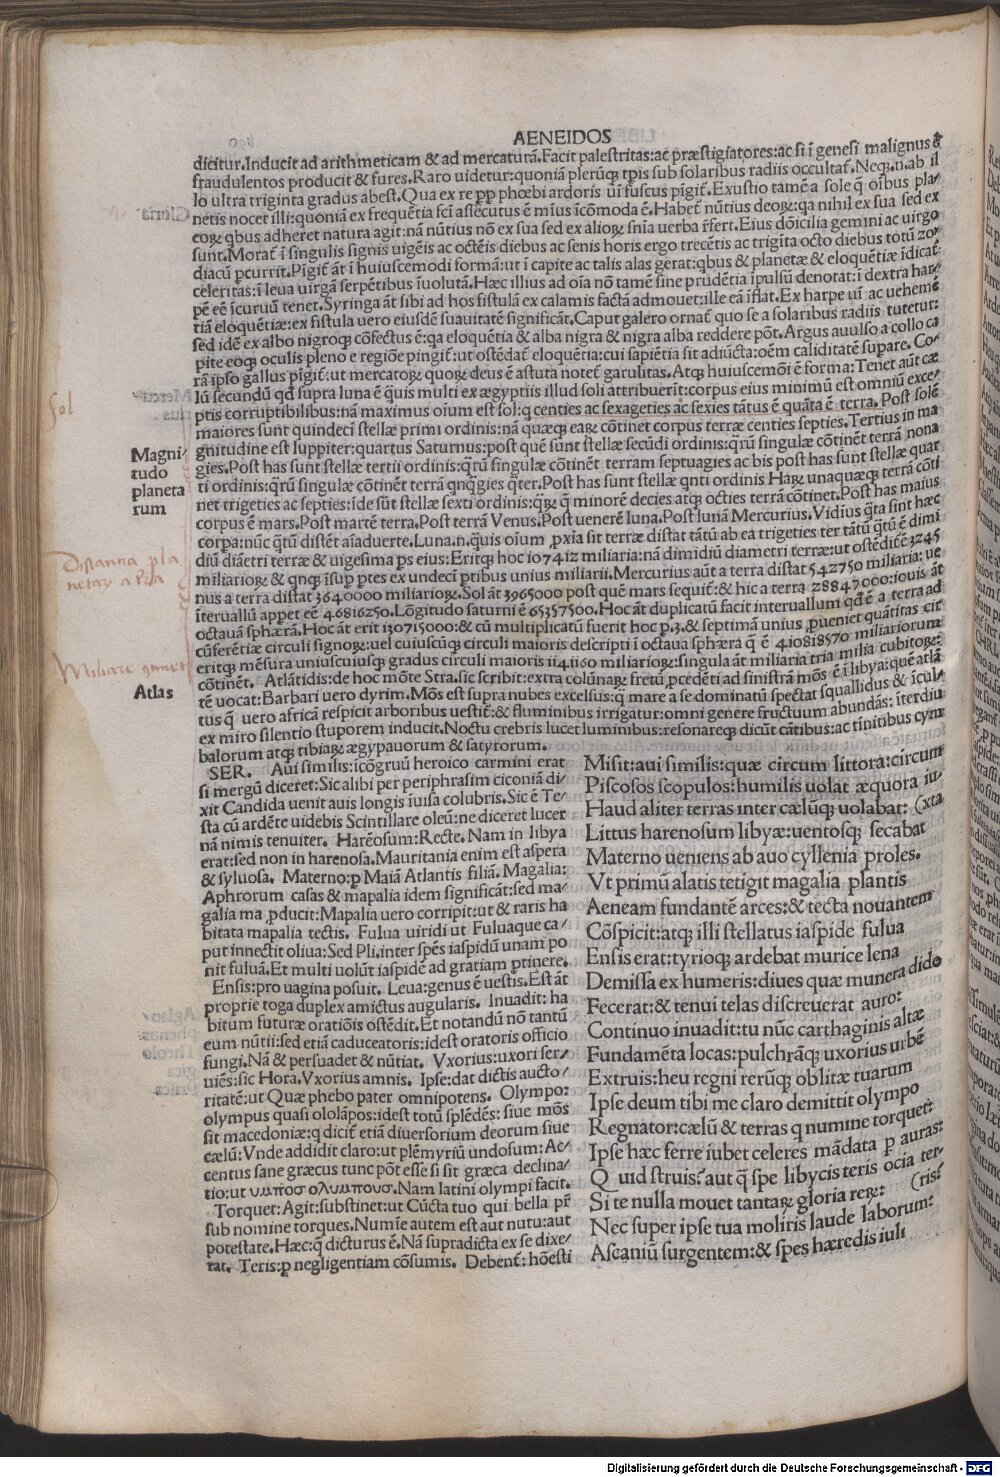 AENEIDOS
dicitur.Inducit ad arithmeticam & ad mercaturā.Facit palestritas:ac præstigiatores:ac si ī genesi malignus ē
fraudulentos producit & fures.Raro uidetur:quoniā plerūqꝫ tpis sub solaribus radiis occultat̄.Neqꝫ.n.ab il
lo ultra triginta gradus abest.Qua ex re pp phœbi ardoris uī fuscus pīgit̄.Exustio tamē a sole q̄ oībus pla/
netis nocet illi:quoniā ex frequētia scī assecutus ē mīus īcōmoda ē.Habet̄ nūtius deoꝝ:qa nihil ex sua sed ex
eoꝝ qbus adheret natura agit:nā nūtius nō ex sua sed ex alioꝝ snīa uerba rfert.Eius dōicilia gemini ac uirgo
sunt.Morat̄ ī singulis signis uigēis ac octēis diebus ac senis horis ergo trecētis ac trigīta octo diebus totū zo/
diacū pcurrit.Pīgit̄ āt ī huiuscemodi formā:ut ī capite ac talis alas gerat:qbus & planetæ & eloquētiæ idicat̄
celeritas:ī leua uirgā serpētibus īuolutā.Hæc illius ad oīa nō tamē sine prudētia īpulsū denotat:ī dextra har/
pē eē īcuruū tenet.Syringa āt sibi ad hos fistulā ex calamis factā admouet:ille eā īflat.Ex harpe uī ac uehemē
tiā eloquētiæ:ex fistula uero eiusdē suauitatē significāt.Caput galero ornat̄ quio se a solaribus radiis tutetur:
sed idē ex albo nigroqꝫ cōfectus ē:qa eloquētia & alba nigra & nigra alba reddere pōt.Argus auulso a collo ca
pite eoqꝫ oculis pleno e regiōe pingit̄:ut ostēdat̄ eloquētia:cui sapiētia sit adiūcta:oēm caliditatē supare.Co/
rā ipso gallus pīgit̄:ut mercatoꝝ quoꝝ deus ē astuta notet̄ garulitas.Atqꝫ huiuscemōi ē forma:Tenet aūt cæ
lū secundū qd̄ supra luna ē q̄uis multi ex ægyptiis illud soli attribuerīt:corpus eius minimū est omniū exce/
ptis corruptibilibus:nā maximus oium est sol:q centies ac sexageties ac sexies tātus ē quāta ē terra.Post solē
maiores sunt quindecī stellæ primi ordinis:nā quæqꝫ eaꝝ cōtinet corpus terræ centies septies.Tertius in ma
gnitudine est Iuppiter:quartus Saturnus:post quē sunt stellæ secūdi ordinis:qrū singulæ cōtinēt terrā nona
gies.Post has sunt stellæ tertii ordinis:qrū singulæ cōtinēt terram septuagies ac bis post has sunt stellæ quar
ti ordinis:qrū singulæ cōtinēt terrā qnqgies qter.Post has sunt stellæ qnti ordinis Haꝝ unaquæqꝫ terrā cōti
net trigeties ac septies:ide sūt stellæ sexti ordinis:qꝝ q̄ minorē decies atqꝫ octies terrā cōtinet.Post has maius
corpus ē mars.Post martē terra.Post terrā Venus.Post uenerē luna.Post lunā Mercurius.Vidius qta sint hæc
corpa:nūc qtū distēt aīaduerte.Luna.n.quis oium pxia sit terræ distat tātū ab ea trigeties ter tātū qtū ē dimi
diū diāetri terræ & uigesima ps eius:Eritqꝫ hoc 107412 miliaria:nā dimidiū diametri terræ:ut ostēdit̄ ē 3245
miliarioꝝ & qnqꝫ īsup ptes ex undecī ptibus unius miliarii.Mercurius aūt a terra distat 542750 miliaria:ue
nus a terra distat 3640000 miliarioꝝ.Sol āt 3965000 post quē mars sequit̄:& hic a terra 28847000:iouis āt
īteruallū appet eē 46816250.Lōgitudo saturni ē 65357500.Hoc āt duplicatū facit interuallum qd̄ ē a terra ad
octauā sphærā.Hoc āt erit 130715000:& cū multiplicatū fuerit hoc p.3.& septimā unius pueniet quātitas cir
cūferētiæ circuli signoꝝ:uel cuiuscūqꝫ circuli maioris descripti ī octaua sphæra q̄ ē 410818570 miliariorum
eritqꝫ mēsura uniuscuiusqꝫ gradus circuli maioris 1141160 miliarioꝝ:singula āt miliaria tria milia cubitoꝝ
cōtinēt. Atlātidis:de hoc mōte Stra.sic scribit:extra colūnaꝝ fretū pcedēti ad sinistrā mōs ē ī libya:quē atlā
tē uocat:Barbari uero dyrim.Mōs est supra nubes excelsus:q mare a se dominatū spectat squallidus & īcul/
tus q uero africā respicit arboribus uestit̄:& fluminibus irrigatur:omni genere fructuum abundās: īterdiu
ex miro silentio stuporem inducit.Noctu crebris lucet luminibus:resonareqꝫ dicūt cātibus:ac tīnitibus cym
balorum atqꝫ tibiaꝝ ægypauorum & satyrorum.
Magni/
tudo
planeta
rum
Atlas
Sol
Distantia pla
netaꝝ a t̄ra
Miliare
SER. Aui similis:īcōgruū heroico carmini erat
si mergū diceret:Sic alibi per periphrasim ciconiā di/
xit Candida uenit auis longis iuisa colubris.Sic ē Te/
sta cū ardēte uidebis Scintillare oleū:ne diceret lucer
nā nimis tenuiter. Harēosum:Recte.Nam in libya
erat:sed non in harenosa.Mauritania enim est aspera
& syluosa. Materno:p Maiā Atlantis filiā.Magalia:
Aphrorum casas & mapalia idem significāt:sed ma/
galia ma pducit:Mapalia uero corripit:ut & raris ha
bitata mapalia tectis. Fulua uiridi ut Fuluaque ca/
put innectit oliua:Sed Pli.inter spēs iaspidū unam po
nit fuluā.Et multi uolūt iaspidē ad gratiam ptinere.
Ensis:pro uagina posuit. Leua:genus ē uestis.Est āt
proprie toga duplex amictus auguralis. Inuadit: ha
bitum futuræ oratiōis ostēdit.Et notandū nō tantū
eum nūtii:sed etiā caduceatoris:idest oratoris officio
fungi.Nā & persuadet & nūtiat. Vxorius:uxori ser/
uiēs:sic Hora.Vxorius amnis. Ipse:dat dictis aucto/
ritatē:ut Quæ phebo pater omnipotens. Olympo:
olympus quasi ololāpos:idest totū splēdēs: siue mōs
sit macedoniæ:q dicit̄ etiā diuersorium deorum siue
cælū:Vnde addidit claro:ut plēmyriū undosum:Ac/
centus sane græcus tunc pōt esse si sit græca declina/
tio:ut υμπος ολυμπουσ.Nam latini olympi facit.
Torquet:Agit:substinet:ut Cūcta tuo qui bella pr̄
sub nomine torques.Numīe autem est aut nutu:aut
potestate.Hæc:q̄ dicturus ē.Nā supradicta ex se dixe/
rat. Teris:p negligentiam cōsumis. Debent̄: hōesti
Misit:aui similis:quæ circum littora:circum
Piscosos scopulos:humilis uolat æquora iu/
Haud aliter terras inter cælūqꝫ uolabat: (xta
Littus harenosum libyæ:uentosqꝫ secabat
Materno ueniens ab auo cyllenia proles.
Vt primū alatis tetigit magalia plantis
Aeneam fundantē arces:& tecta nouantem
Cōspicit:atqꝫ illi stellatus iaspide fulua
Ensis erat:tyrioqꝫ ardebat murice lena
Demissa ex humeris:diues quæ munera dido
Fecerat:& tenui telas discreuerat auro:
Continuo inuadit:tu nūc carthaginis altæ
Fundamēta locas:pulchrāqꝫ uxorius urbē
Extruis:heu regni rerūqꝫ oblitæ tuarum
Ipse deum tibi me claro demittit olympo
Regnator:cælū & terras q numine torquet:
Ipse hæc ferre iubet celeres mādata p auras:
Quid struis:aut q̄ spe libycis teris ocia ter/
Si te nulla mouet tantaꝝ gloria reꝝ: (ris:
Nec super ipse tua moliris laude laborum:
Ascaniū surgentem:& spes hæredis iuli
Digitalisierung gefördert durch die Deutsche Forschungsgemeinschaft - DFG